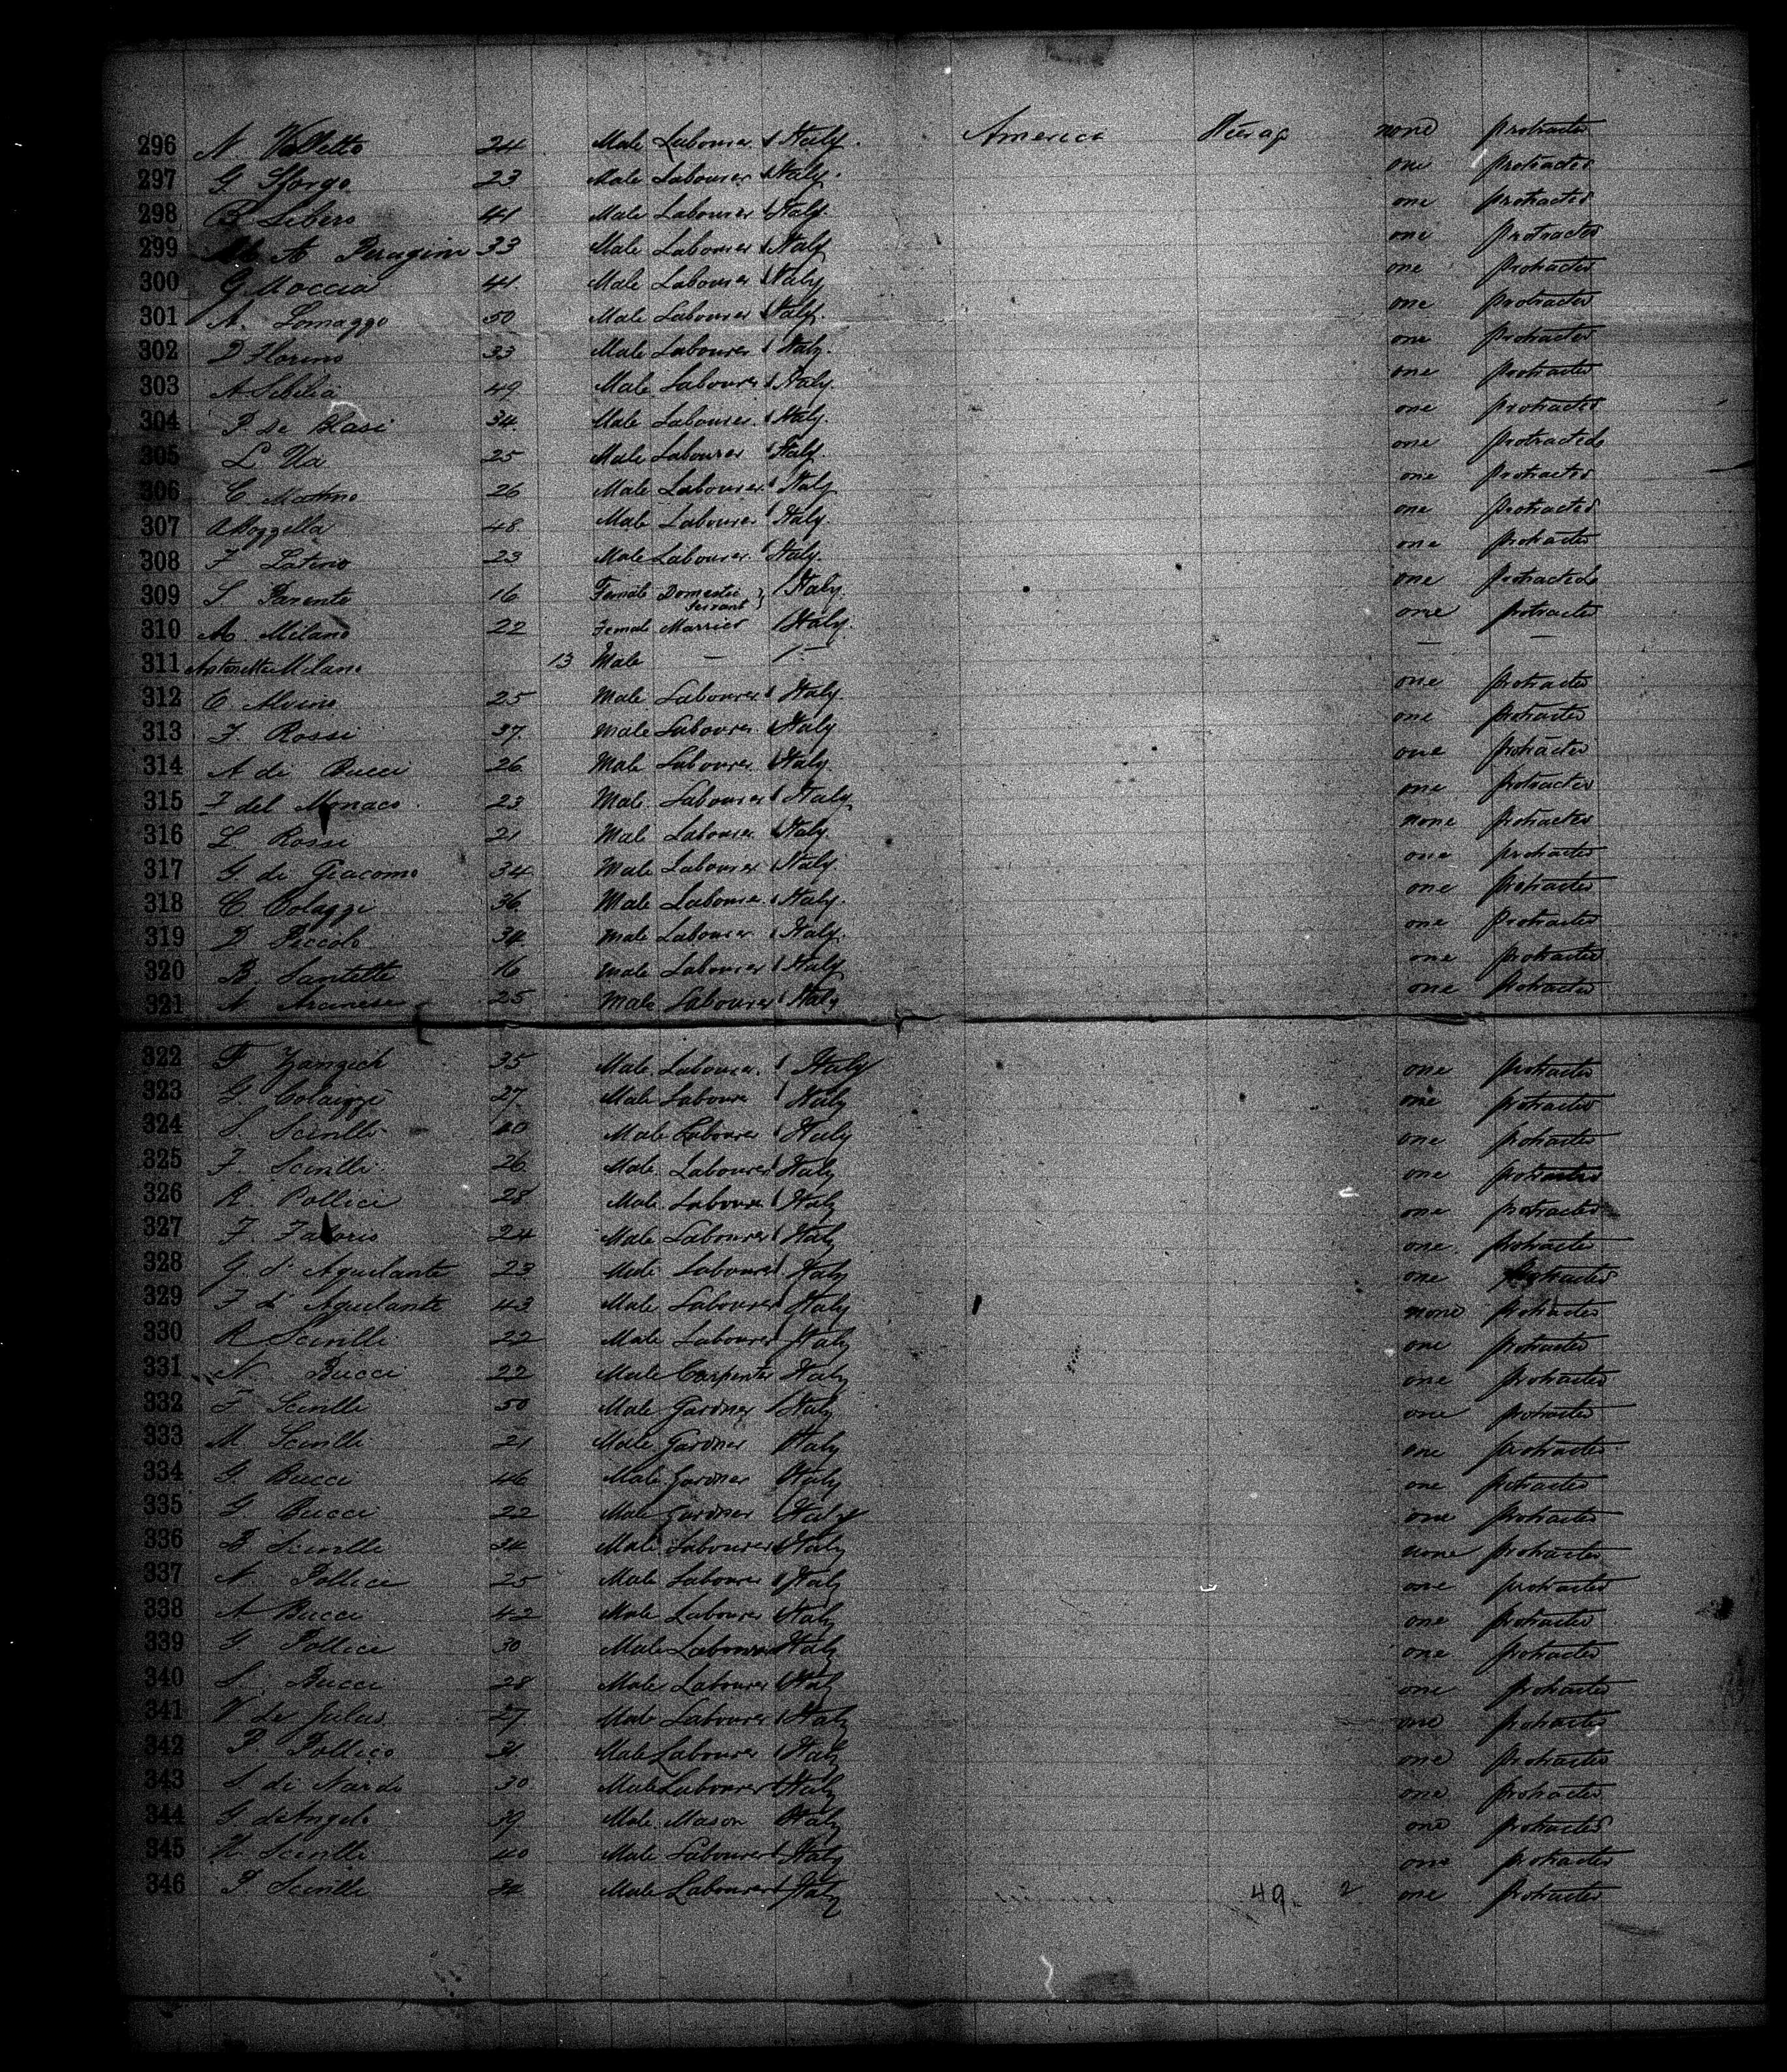 296 N. Valletta 24 Male Labourer Italy. America Steerage none protracted
297 G. Sforgo 23 Male Labourer Italy. one protracted
298 B. Libero 41 Male Labourer Italy. one protracted
299 A Perugini 33 Male Labourer Italy one protracted
300 G Moccia 41. Male Labourer Italy one protracted
301 A. Lomaggo 50 Male Labourer Italy. one protracted
302 D Florino 33 Male Labourer Italy. one protracted
303 A Sibilia 49. Male Labourer Italy. one protracted
304 P. de Blasi 34. Male Labourer Italy. one protracted
305 L 25 Male Labourer Italy. one protracted
306 C Martino 26 Male Labourer Italy one protracted
307 48. Male Labourer Italy. one protracted
308 F Latino 23 Male Labourer Italy. one protracted
309 S Parente 16 Female Domestic Servant } Italy. one protracted
310 A. Milano 22 Female Married Italy. one protracted
311 Antonetta Milano 13 Male — — — —
312 C Alvino 25 Male Labourer Italy. one protracted
313 F. Rossi 37. Male Labourer Italy one protracted
314 A di Bucci 26 Male Labourer Italy. one protracted
315 F del Monaco. 23 Male Labourer Italy one protracted
316 L Rossi 21 Male Labourer Italy. none protracted
317 G. di Giacomo 34 Male Labourer Italy. one protracted
318 C Colaggi 36 Male Labourer Italy. one protracted
319 D Piccolo 34. Male Labourer Italy. one protracted
320 B. Santette 16 Male Labourer Italy one protracted
321 A. 25 Male Labourer Italy one protracted
322 F 35 Male Labourer Italy one protracted
323 G. Colaizzi 27. Male Labourer Italy one protracted
324 S. Scirilli 40 Male Labourer Italy one protracted
325 F. Scirilli 26 Male Labourer Italy one protracted
326 R. Pollice 28 Male Labourer Italy one protracted
327 F. 24 Male Labourer Italy one protracted
328 G. d'Aquilante 23 Male Labourer Italy one protracted
329 F d'Aquilante 43 Male Labourer Italy none protracted
330 R Scirilli 22 Male Labourer Italy one protracted
331 N. Bucci 22 Male Carpenter Italy one protracted
332 F Scirilli 50 Male Gardner Italy one protracted
333 M Scirilli 21 Male Gardner Italy one protracted
334 G. Bucci 46 Male Gardner Italy one protracted
335 G. Bucci 22 Male Gardner Italy one protracted
336 B Scirilli 34 Male Labourer Italy none protracted
337 N. Pollice 25 Male Labourer Italy one protracted
338 A Bucci 42 Male Labourer Italy one protracted
339 G Pollice 30 Male Labourer Italy one protracted
340 S. Bucci 28 Male Labourer Italy one protracted
341 V de Julus 27. Male Labourer Italy one protracted
342 P. Pollice 31. Male Labourer Italy one protracted
343 S di Nardo 30 Male Labourer Italy one protracted
344 G. d'Angelo 39. Male Mason Italy one protracted
345 Scirilli 40 Male Labourer Italy one protracted
346 P. Scirilli 34. Male Labourer Italy 49. 2 one protracted